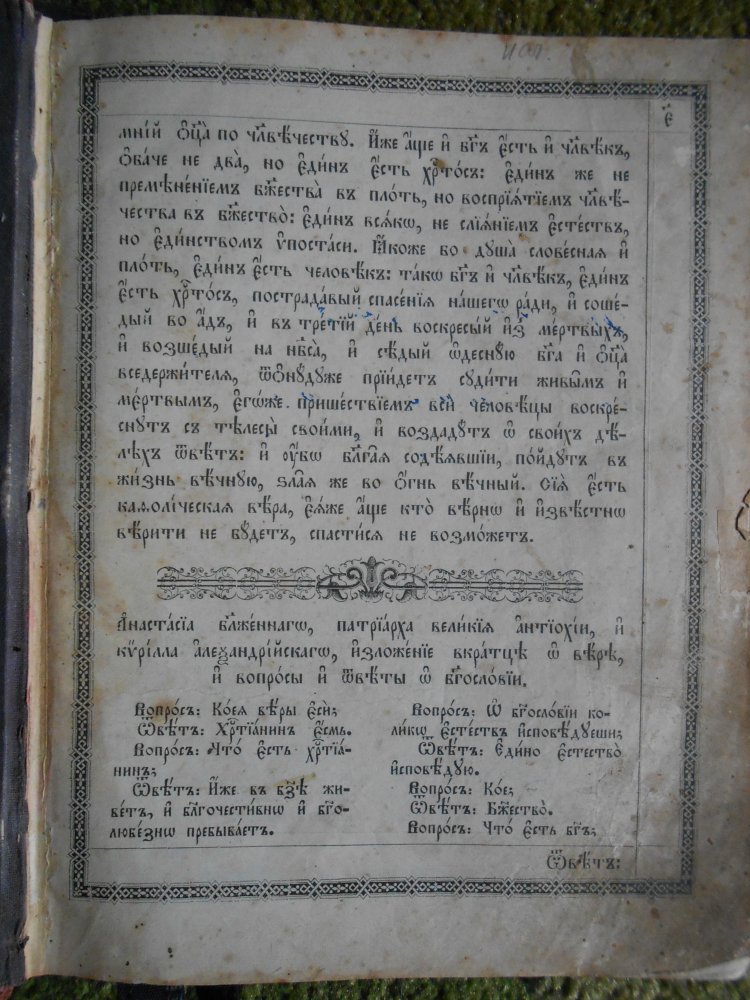 исп.
є҃
мні́й ѻ҆ц҃а̀ по чл҃вѣ́честву. И҆́же а҆́ще и҆ бг҃ъ є҆́сть и҆ чл҃вѣ́къ,
ѻ҆ба́че не два̀, но є҆ди́нъ є҆́сть хрⷭ҇то́съ: є҆ди́нъ же не
премѣне́нїемъ бж҃ества̀ въ пло́ть, но воспрїѧ́тїемъ чл҃вѣ́-
чества въ бж҃ество̀: є҆ди́нъ всѧ́кѡ, не слїѧ́нїемъ є҆сте́ствъ,
но є҆ди́нствомъ ѵ҆поста́си. Ꙗ҆́коже бо дꙋша̀ слове́снаѧ и҆
пло́ть, є҆ди́нъ є҆́сть человѣ́къ: та́кѡ бг҃ъ и҆ чл҃вѣ́къ, є҆ди́нъ
є҆́сть хрⷭ҇то́съ, пострада́вый спасе́нїѧ на́шегѡ ра́ди, и҆ соше́-
дый во а҆́дъ, и҆ въ тре́тїй де́нь воскресы́й и҆з̾ ме́ртвыхъ,
и҆ возше́дый на нб҃са̀, и҆ сѣ́дый ѡ҆деснꙋ́ю бг҃а и҆ ѻ҆ц҃а̀
вседержи́телѧ, ѿѻнꙋ́дꙋже прїи́детъ сꙋди́ти живы̑мъ и҆
мє́ртвымъ, є҆гѡ́же прише́ствїемъ всѝ человѣ́цы воскре́-
снꙋтъ съ тѣлесы̀ свои́ми, и҆ воздадꙋ́тъ ѡ҆ свои́хъ дѣ́-
лѣхъ ѿвѣ́тъ: и҆ ᲂу҆́бѡ бл҃га̑ѧ содѣ́ѧвшїи, по́йдꙋтъ въ
жи́знь вѣ́чнꙋю, ѕла̑ѧ же во ѻ҆́гнь вѣ́чный. Сїѧ̀ є҆́сть
каѳоли́ческаѧ вѣ́ра, є҆ѧ́же а҆́ще кто̀ вѣ́рнѡ и҆ и҆звѣ́стнѡ
вѣ́рити не бꙋ́детъ, спасти́сѧ не возмо́жетъ.
А҆наста́сїа бл҃же́ннагѡ, патрїа́рха вели́кїѧ а҆нтїохі́и, и҆
кѷрі́лла а҆леѯандрі́йскагѡ, и҆зложе́нїе вкра́тцѣ ѡ҆ вѣ́рѣ,
и҆ вопро́сы и҆ ѿвѣ́ты ѡ҆ бг҃осло́вїи.
Вопро́съ: Ко́еѧ вѣ́ры є҆сѝ;
Ѿвѣ́тъ: Хрⷭ҇тїа́нинъ є҆́смь.
Вопро́съ: Что̀ є҆́сть хрⷭ҇тїа́-
нинъ;
Ѿвѣ́тъ: И҆́же въ бз҃ѣ жи-
ве́тъ, и҆ бл҃гочести́внѡ и҆ бг҃о-
любе́знѡ пребыва́етъ.
Вопро́съ: Ѡ҆ бг҃осло́вїи ко-
ли́кѡ є҆сте́ствъ и҆сповѣ́дꙋеши;
Ѿвѣ́тъ: Є҆ди́но є҆стество̀
и҆сповѣ́дꙋю.
Вопро́съ: Ко́е;
Ѿвѣ́тъ: Бж҃ество̀.
Вопро́съ: Что̀ є҆́сть бг҃ъ;
Ѿвѣ́тъ: